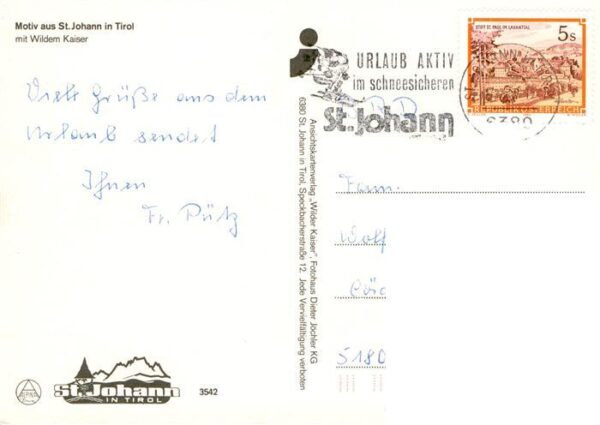 Motiv aus St. Johann in Tirol
mit Wildem Kaiser
Viele Grüße aus dem
Urlaub sendet
Ihnen
Fr. Pütz
St. Johann
IN TIROL
3542
Ansichtskartenverlag „Wilder Kaiser", Fotohaus Dieter Jöchler KG
6380 St. Johann in Tirol, Speckbacherstraße 12. Jede Vervielfältigung verboten
URLAUB AKTIV
im schneesicheren
St. Johann
STIFT ST. PAUL IM LAVANTTAL
5 S
REPUBLIK ÖSTERREICH
6380
Fam.
Wolf
5180